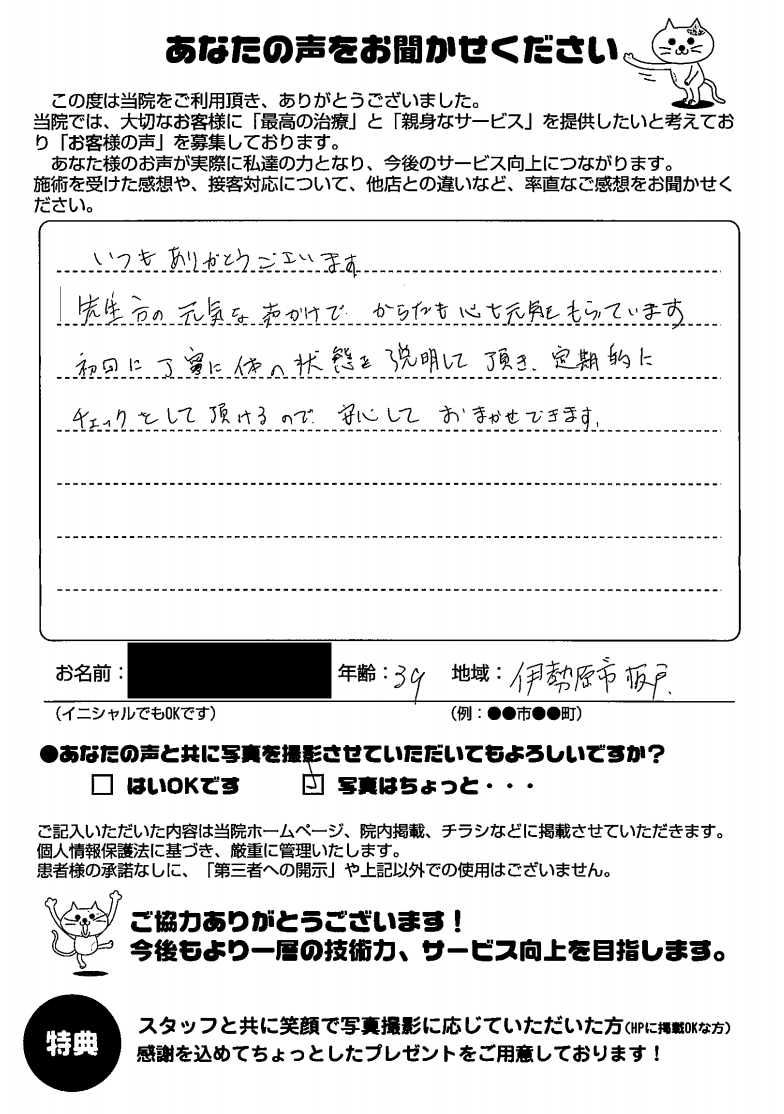 あなたの声をお聞かせください
この度は当院をご利用頂き、ありがとうございました。
当院では、大切なお客様に「最高の治療」と「親身なサービス」を提供したいと考えてお
り「お客様の声」を募集しております。
あなた様のお声が実際に私達の力となり、今後のサービス向上につながります。
施術を受けた感想や、接客対応について、他店との違いなど、率直なご感想をお聞かせく
ださい。
いつもありがとうございます
先生方の元気な声かけで からだも心も元気をもらっています
初回に丁寧に体の状態を説明して頂き、定期的に
チェックをして頂けるので、安心して おまかせできます。
お名前： 年齢：39 地域：伊勢原市板戸
（イニシャルでもOKです） （例：●●市●●町）
●あなたの声と共に写真を撮影させていただいてもよろしいですか？
□ はいOKです ☑ 写真はちょっと・・・
ご記入いただいた内容は当院ホームページ、院内掲載、チラシなどに掲載させていただきます。
個人情報保護法に基づき、厳重に管理いたします。
患者様の承諾なしに、「第三者への開示」や上記以外での使用はございません。
ご協力ありがとうございます！
今後もより一層の技術力、サービス向上を目指します。
特典
スタッフと共に笑顔で写真撮影に応じていただいた方（HPに掲載OKな方）
感謝を込めてちょっとしたプレゼントをご用意しております！